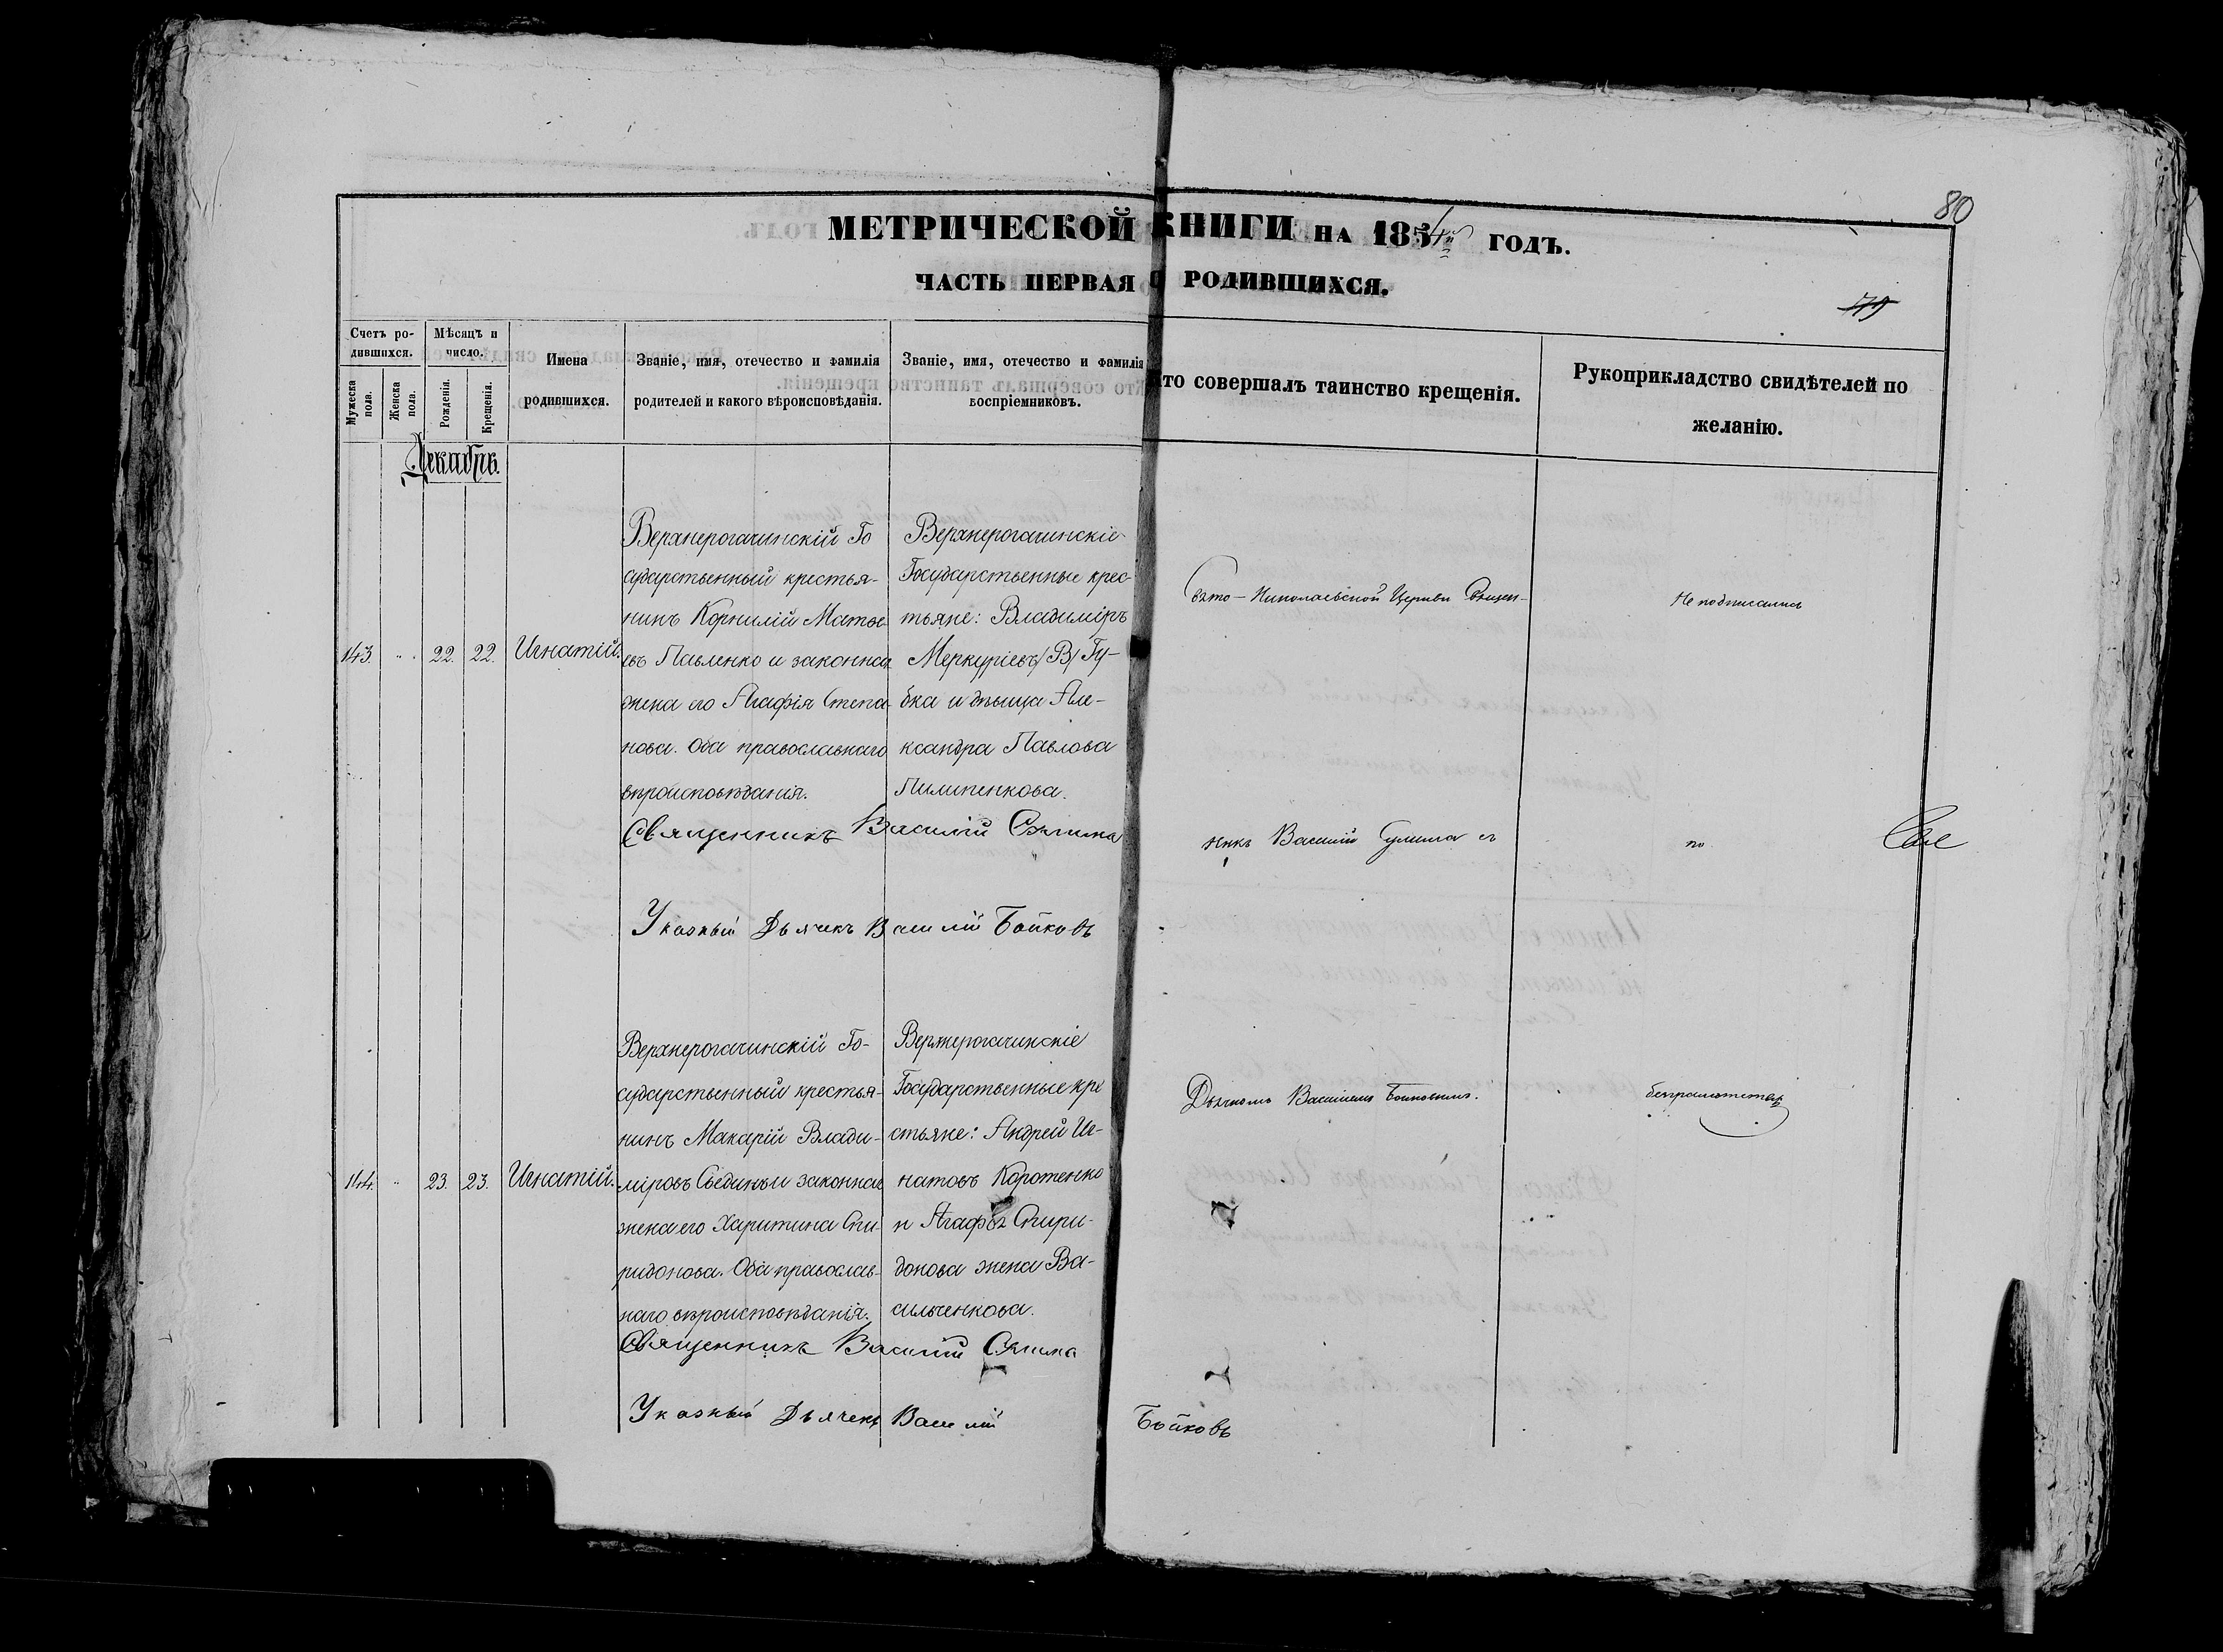 80
МЕТРИЧЕСКОЙ КНИГИ НА 1854й ГОДЪ.
ЧАСТЬ ПЕРВАЯ О РОДИВШИХСЯ.
79
Счетъ ро-
дившихся.
Мужеска пола.
Женска пола.
Мѣсяцъ и
число.
Рожденія.
Крещенія.
Имена
родившихся.
Званіе, имя, отечество и фамилія
родителей и какого вѣроисповѣданія.
Званіе, имя, отечество и фамилія
воспріемниковъ.
Кто совершалъ таинство крещенія.
Рукоприкладство свидѣтелей по
желанію.
Декабрь.
143.
22.
22.
Игнатій.
Верхнерогачинскій Го
сударственный крестья-
нинъ Корнилій Матѳе
евъ Павленко и законная
жена его Агафія Степа
нова. Оба православнаго
вѣроисповѣданія.
Верхнерогачинскіе
Государственные крес-
тьяне: Владиміръ
Меркуріевъ /В/ Гу-
бка и дѣвица Але-
ксандра Павлова
Пилипенкова.
Свято-Николаевской Церкви Священ-
никъ Василій Сулима съ
Не подписались
по
Священникъ Василій Сулима
Указный Дьячекъ Василій Бойковъ
144.
23.
23.
Игнатій.
Верхнерогачинскій Го-
сударственный крестья-
нинъ Макарій Влади-
міровъ и законная
жена его Харитина Спи-
ридонова. Оба православ-
наго вѣроисповѣданія.
Верхнерогачинскіе
Государственные кре
стьяне: Андрей Иг-
натовъ Коротенко
и Агафья Спири-
донова жена Ва-
сильченкова.
Дьячкомъ Василіемъ Бойковымъ.
безграмотству
Священникъ Василій Сулима
Указный Дьячекъ Василій Бойковъ